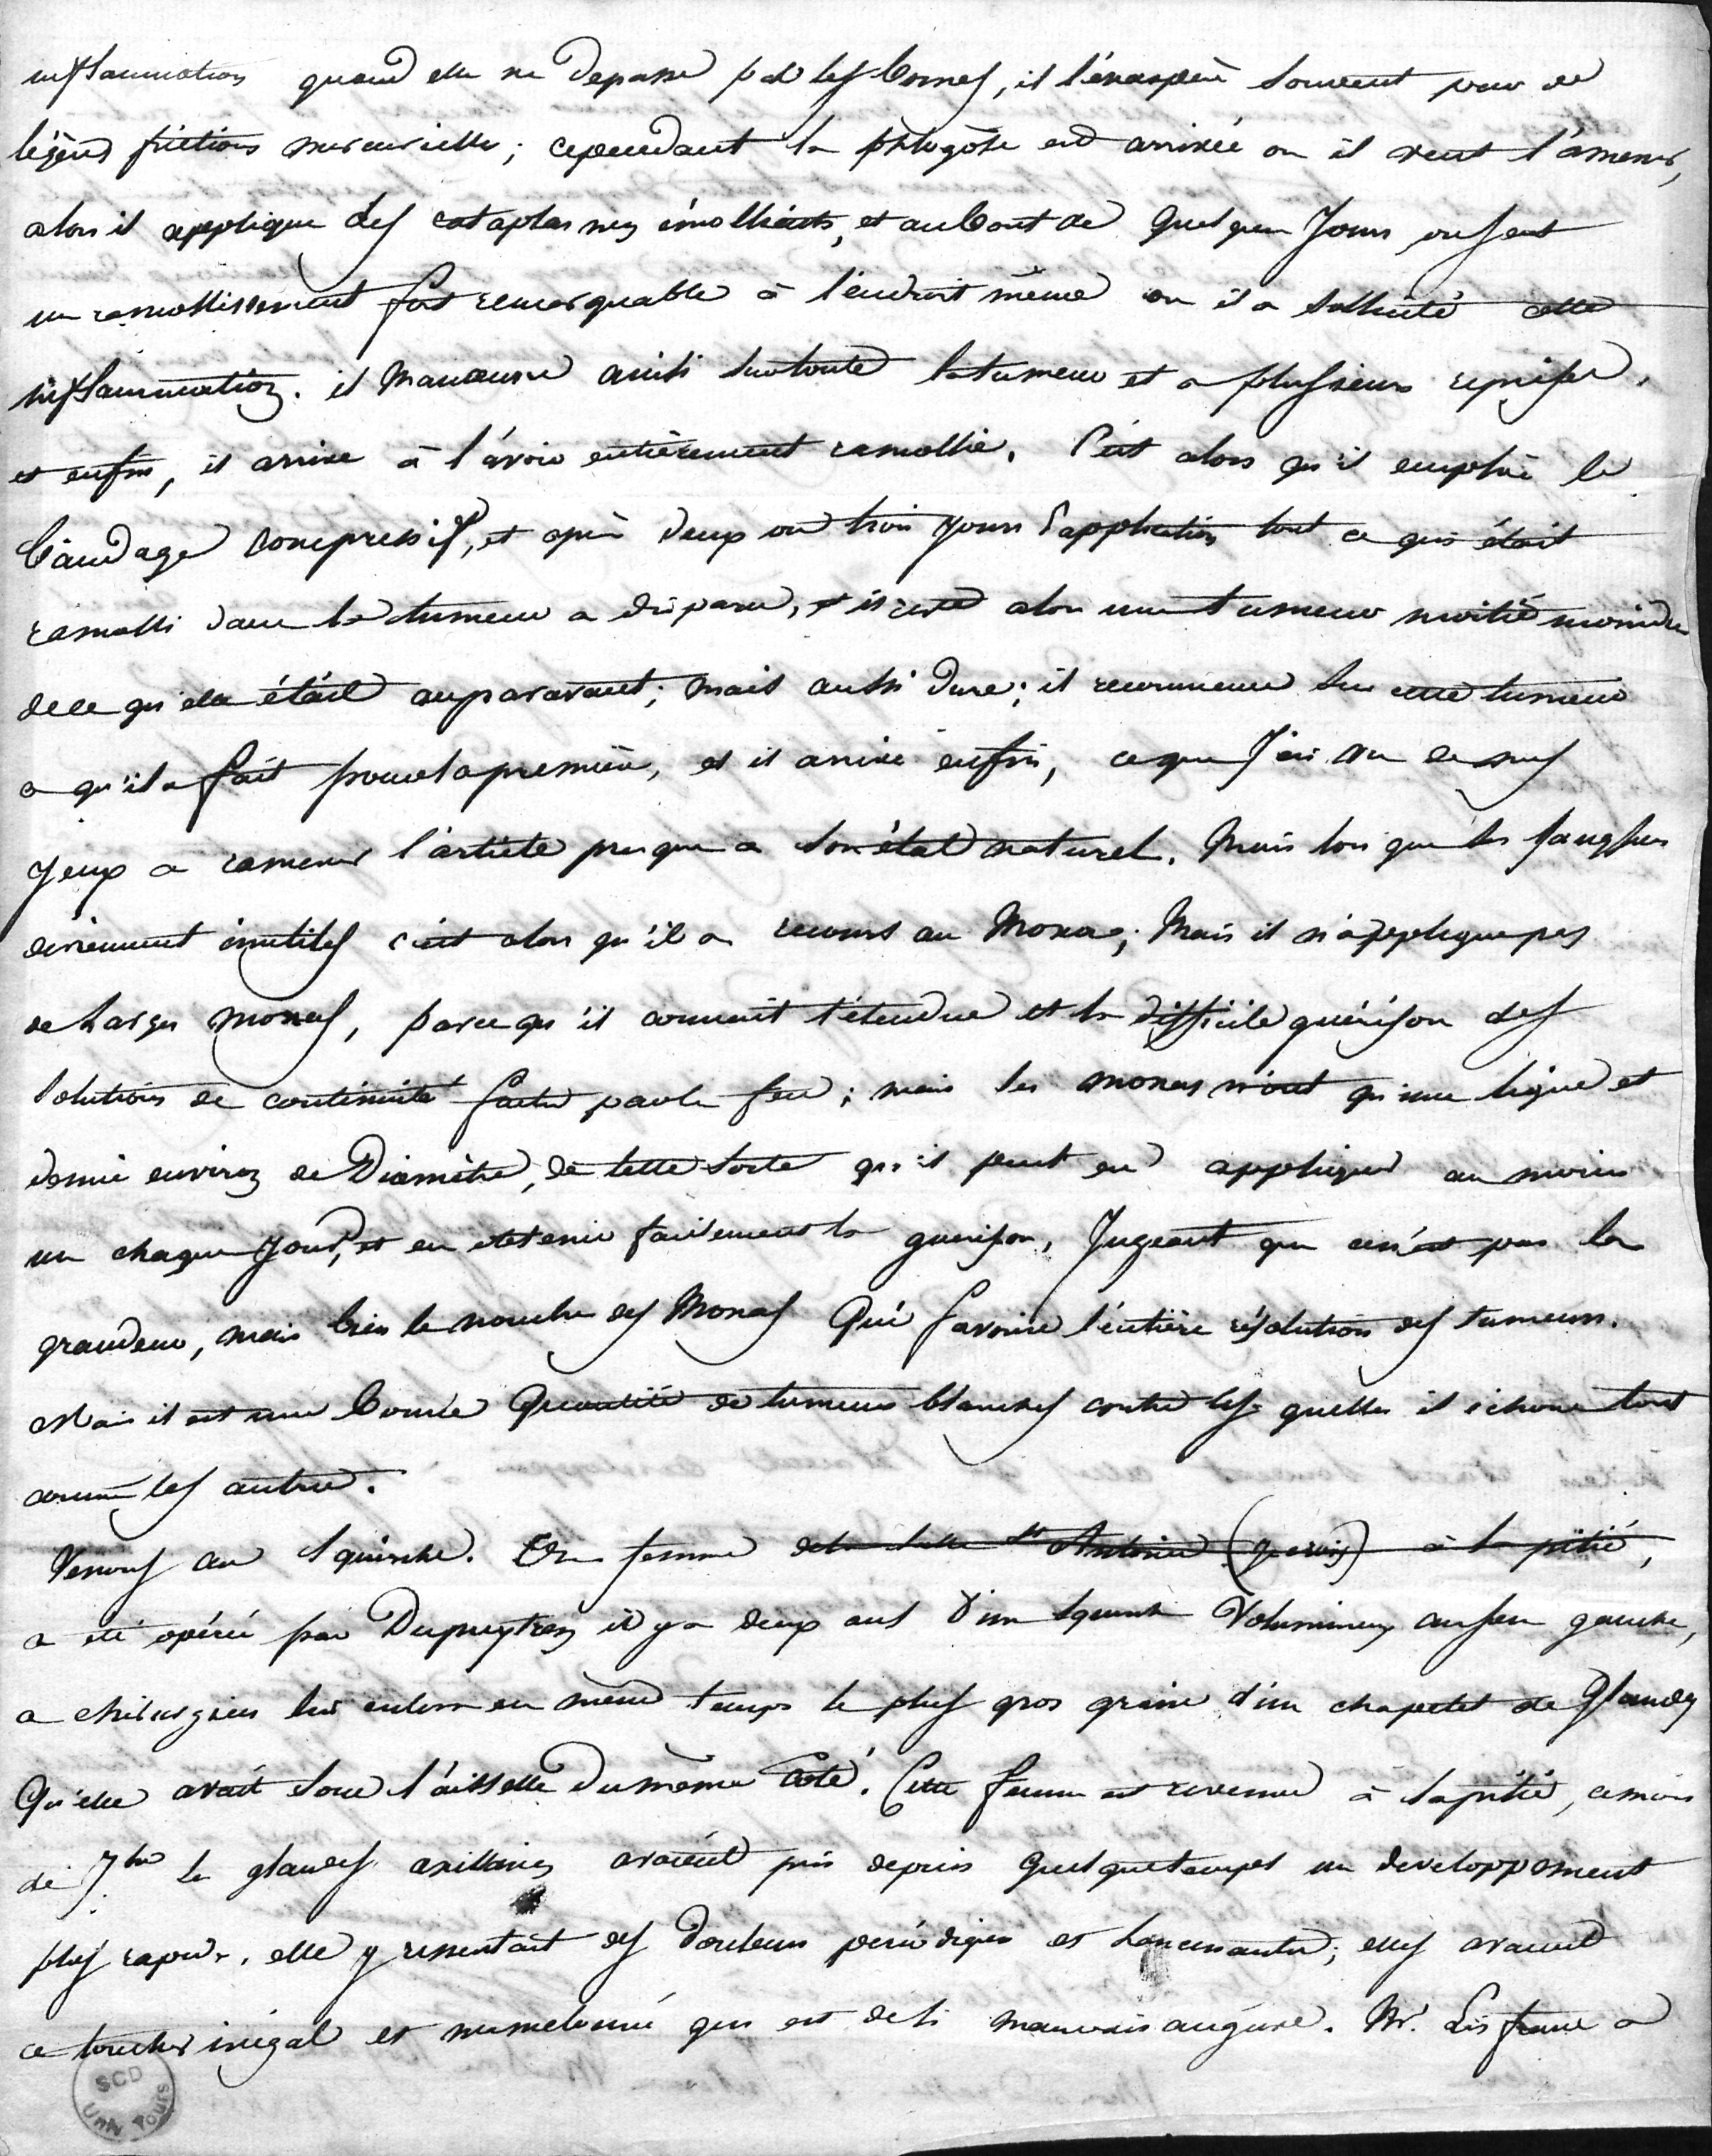 inflammation quand elle ne depasse pas les bornes, il l'énaspère souvent par de
légères frictions mercurielles; cependant la phlogôse est arrivée ou il veut l'amener,
alors il applique des cataplasmes émollients, et au bout de quelques Jours on sent
un ramollissement fort remarquable à l'endroit même ou il a sollicité cette
inflammation. il manœuvre ainsi sur toute la tumeur et a plusieurs reprises,
et enfin, il arrive à l'avoir entièrement ramollie. C'est alors qu'il emploie le
bandage compressif, et après deux ou trois jours d'application tout ce qui était
ramolli dans la tumeur a disparu, et il reste alors une tumeur moitié moindre
de ce qu'elle était auparavant; mais aussi dure; il recommence sur cette tumeur
ce qu'il a fait pour la première, et il arrive enfin, ce que J'ai vu de mes
yeux a ramener l'article presque a son état naturel. Mais lorsque les sangsues
deviennent inutiles c'est alors qu'il a recours au Moxa; Mais il n'applique pas
de larges moxas, parce qu'il connait l'étendue et la difficile guérison des
solutions de continuité faites par le feu; mais les moxas n'ont qu'une ligne et
demie environ de Diamètre, de telle sorte qu'il peut en appliquer au moins
un chaque Jour, et en obtenir facilement la guérison, Jugeant que ce n'est pas la
grandeur, mais bien le nombre des Moxas Qui favorise l'entière résolution des tumeurs.
Mais il est une bonne Quantité de tumeurs blanches contre lesquelles il échoue tout
comme les autres.
Venons au squirrhe. Une femme de la salle St Antoine (je crois) à la pitié,
a été opérée par Dupuytren il y a deux ans d'un squirrhe Volumineux au sein gauche,
ce chirurgien lui enleva en même temps le plus gros grain d'un chapelet de Glandes
Qu'elle avait sous l'aisselle du même Coté. Cette femme est revenue à la pitié, ce mois
de 7bre les glandes axillaires avaient pris depuis quelque temps un developpement
plus rapide, elle y ressentait des Douleurs périodiques et lancinantes; elles avaient
ce toucher inégal et mamelonné qui est de si mauvais augure. Mr. Lisfranc a
SCD
Univ Tours